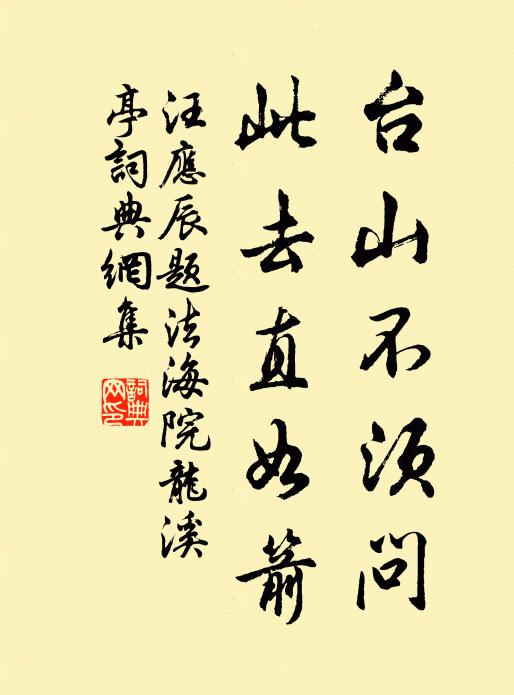 台山不須問
此去直如箭
汪應辰題法海院龍溪
亭詞典網集
詞典
网印